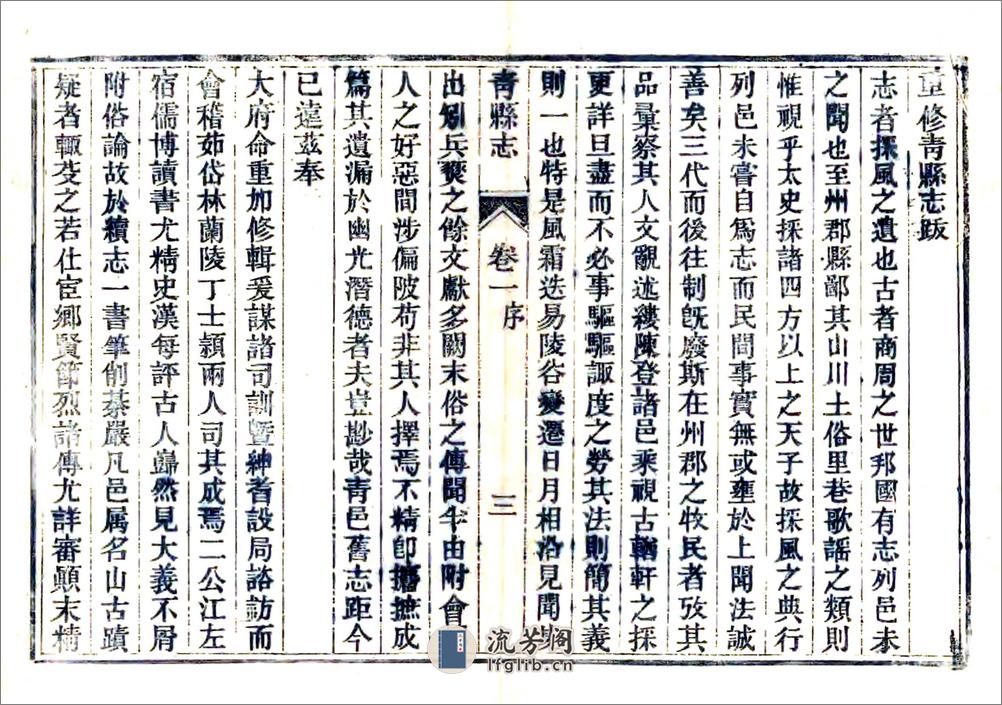 重修青縣志跋
志者採風之遺也古者商周之世邦國有志列邑未
之聞也至州郡縣鄙其山川土俗里巷歌謡之類則
惟視乎太史採諸四方以上之天子故採風之典行
列邑未嘗自爲志而民間事實無或壅於上聞法誠
善矣三代而後往制旣廢斯在州郡之牧民者攷其
品彚察其人文覼述縷陳登諸邑乘視古輶軒之採
更詳且盡而不必事驅驅諏度之勞其法則簡其義
則一也特是風霜迭易陵谷變遷日月相沿見聞
青縣志
卷一
序
三
出矧兵燹之餘文獻多闕末俗之傳聞半由附會
人之好惡間涉偏陂苟非其人擇焉不精卽攟摭成
篇其遺漏於幽光潛德者夫豈尠哉青邑舊志距今
已逺茲奉
大府命重加修輯爰謀諸司訓曁紳耆設局諮訪而
會稽茹岱林蘭陵丁士頴兩人司其成焉二公江左
宿儒博讀書尤精史漢每評古人巋然見大義不屑
附俗論故於續志一書筆削綦嚴凡邑属名山古蹟
疑者輒芟之若仕宦鄉賢節烈諸傳尤詳審顚末精
流芳阁
lfglib.cn